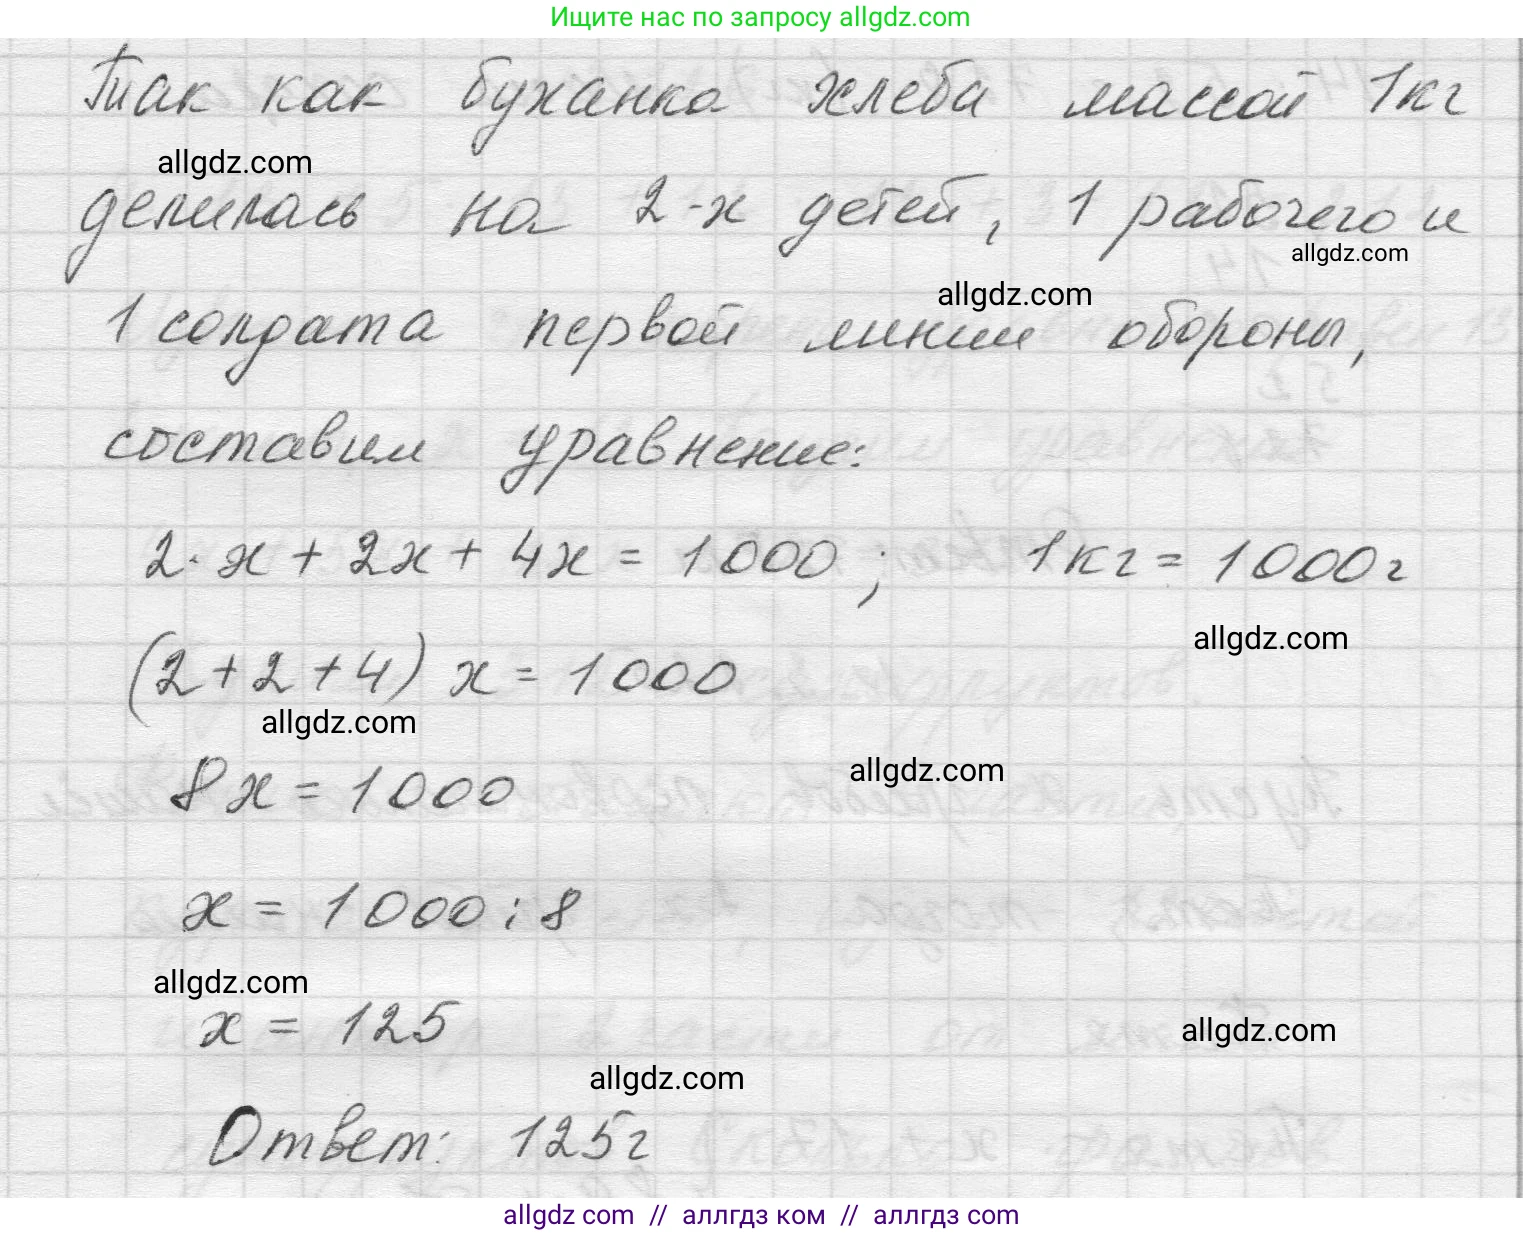 Ищите нас по запросу allgdz.com
Так как буханка хлеба массой 1кг
allgdz.com
делилась на 2-х детей, 1 рабочего и
allgdz.com
allgdz.com
1 солдата первой линии обороны,
составим уравнение:
2·x + 2x + 4x = 1000; 1кг = 1000г
allgdz.com
(2+2+4) x = 1000
allgdz.com
allgdz.com
8x = 1000
x = 1000:8
allgdz.com
x = 125
allgdz.com
allgdz.com
Ответ: 125г
allgdz com // аллгдз ком // аллгдз com